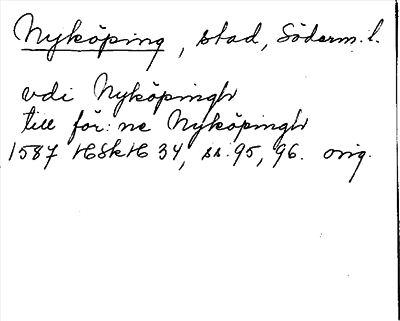 Nyköping, stad, Söderm. l.
vdi Nyköpingh
till för:ne Nyköpingh
1587 HSkH 34, ss. 95, 96. orig.